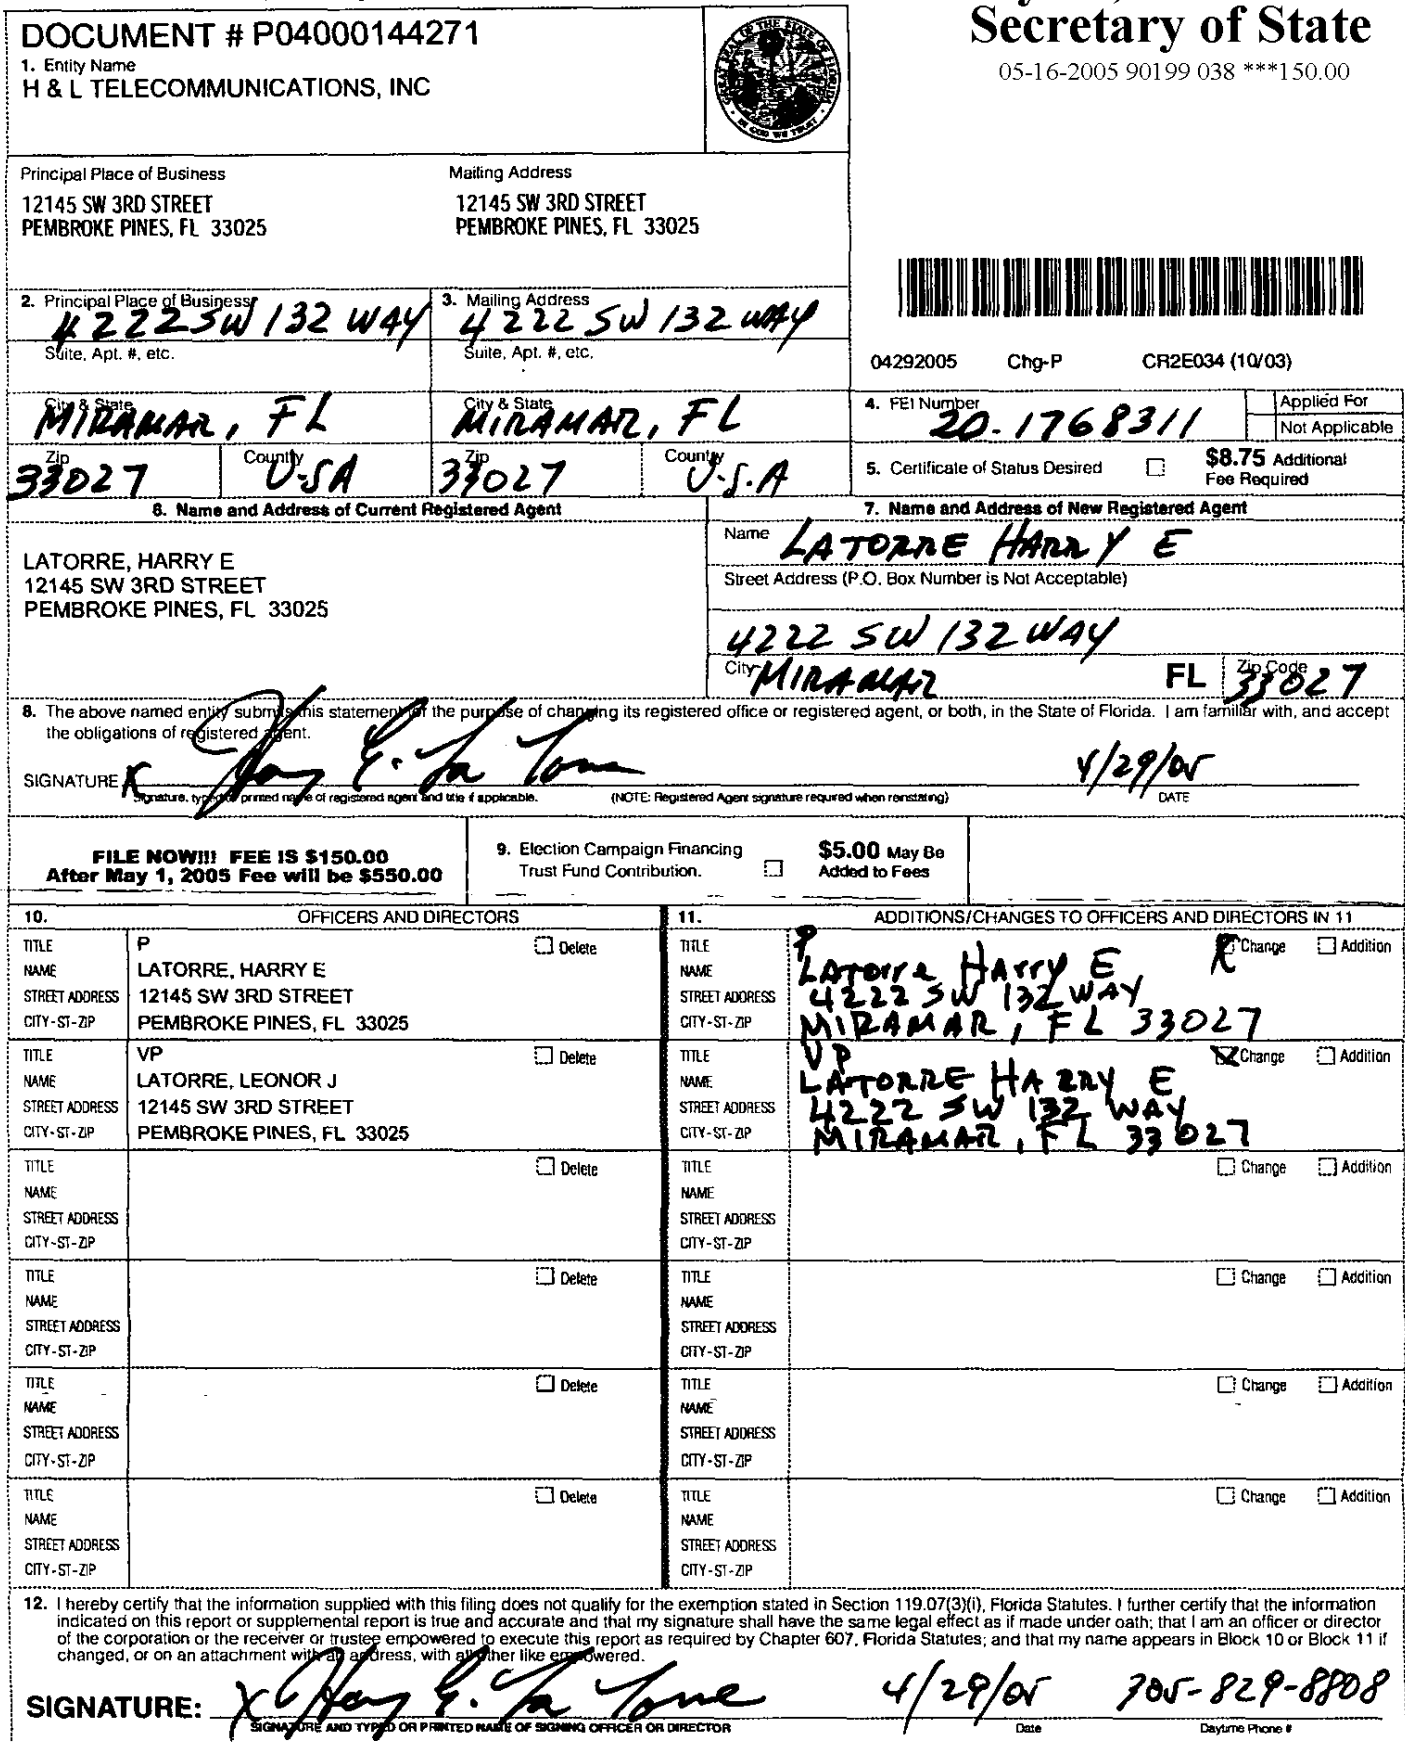 Secretary of State
05-16-2005 90199 038 ***150.00
DOCUMENT # P04000144271
1. Entity Name
H & L TELECOMMUNICATIONS, INC
Principal Place of Business
12145 SW 3RD STREET
PEMBROKE PINES, FL 33025
Mailing Address
12145 SW 3RD STREET
PEMBROKE PINES, FL 33025
2. Principal Place of Business
4222 SW 132 WAY
Suite, Apt. #, etc.
City & State
MIRAMAR, FL
Zip
33027
Country
U.SA
3. Mailing Address
4222 SW 132 WAY
Suite, Apt. #, etc.
City & State
MIRAMAR, FL
Zip
33027
Country
U.S.A
04292005 Chg-P CR2E034 (10/03)
4. FEI Number
20.1768311
Applied For
Not Applicable
5. Certificate of Status Desired
$8.75 Additional
Fee Required
6. Name and Address of Current Registered Agent
LATORRE, HARRY E
12145 SW 3RD STREET
PEMBROKE PINES, FL 33025
7. Name and Address of New Registered Agent
Name LATORRE HARRY E
Street Address (P.O. Box Number is Not Acceptable)
4222 SW 132 WAY
City MIRAMAR FL Zip Code 33027
8. The above named entity submits this statement for the purpose of changing its registered office or registered agent, or both, in the State of Florida. I am familiar with, and accept
the obligations of registered agent.
SIGNATURE X Harry E. La Torre 4/29/05
Signature, typed or printed name of registered agent and title if applicable. (NOTE: Registered Agent signature required when reinstating) DATE
FILE NOW!!! FEE IS $150.00
After May 1, 2005 Fee will be $550.00
9. Election Campaign Financing
Trust Fund Contribution.
$5.00 May Be
Added to Fees
10. OFFICERS AND DIRECTORS
TITLE P Delete
NAME LATORRE, HARRY E
STREET ADDRESS 12145 SW 3RD STREET
CITY-ST-ZIP PEMBROKE PINES, FL 33025
TITLE VP Delete
NAME LATORRE, LEONOR J
STREET ADDRESS 12145 SW 3RD STREET
CITY-ST-ZIP PEMBROKE PINES, FL 33025
TITLE Delete
NAME
STREET ADDRESS
CITY-ST-ZIP
TITLE Delete
NAME
STREET ADDRESS
CITY-ST-ZIP
TITLE Delete
NAME
STREET ADDRESS
CITY-ST-ZIP
TITLE Delete
NAME
STREET ADDRESS
CITY-ST-ZIP
11. ADDITIONS/CHANGES TO OFFICERS AND DIRECTORS IN 11
TITLE P X Change Addition
NAME LATorre HArry E
STREET ADDRESS 4222 SW 132 WAY
CITY-ST-ZIP MIRAMAR, FL 33027
TITLE VP X Change Addition
NAME LATORRE HARRY E
STREET ADDRESS 4222 SW 132 WAY
CITY-ST-ZIP MIRAMAR, FL 33027
TITLE Change Addition
NAME
STREET ADDRESS
CITY-ST-ZIP
TITLE Change Addition
NAME
STREET ADDRESS
CITY-ST-ZIP
TITLE Change Addition
NAME
STREET ADDRESS
CITY-ST-ZIP
TITLE Change Addition
NAME
STREET ADDRESS
CITY-ST-ZIP
12. I hereby certify that the information supplied with this filing does not qualify for the exemption stated in Section 119.07(3)(i), Florida Statutes. I further certify that the information
indicated on this report or supplemental report is true and accurate and that my signature shall have the same legal effect as if made under oath; that I am an officer or director
of the corporation or the receiver or trustee empowered to execute this report as required by Chapter 607, Florida Statutes; and that my name appears in Block 10 or Block 11 if
changed, or on an attachment with an address, with all other like empowered.
SIGNATURE: X Harry E. La Torre 4/29/05 305-829-8808
SIGNATURE AND TYPED OR PRINTED NAME OF SIGNING OFFICER OR DIRECTOR Date Daytime Phone #